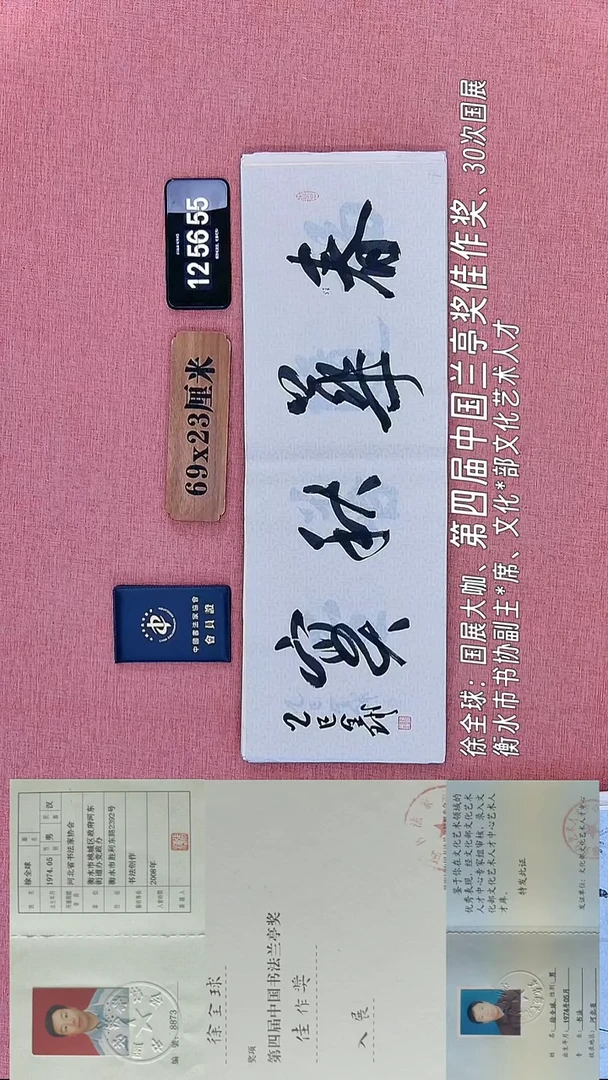 徐全球：国展大咖、第四届中国兰亭奖佳作奖、30次国展
衡水市书协副主*席、文化*部文化艺术人才
12 56 55
69x23厘米
中國書法家協会
會員證
春華秋實
乙巳全球
徐全球
1974.05 男 汉
河北省书法家协会
衡水市桃城区政府河东
街道办党政办
衡水市胜利东路2292号
书法创作
2008年
编号: 8873
徐全球
奖项
第四届中国书法兰亭奖
佳作奖
入展
鉴于你在文化艺术领域的
优秀表现，经文化部文化艺术
人才中心专家组审核，录入文
化部文化艺术人才中心艺术人
才库。
特发此证
发证单位：文化部文化艺术人才中心
姓名：徐全球 性别：男
出生年月：1974年05月
专业：书法